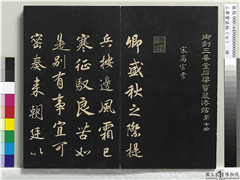 御刻三希堂石渠寶笈法帖第
宋高宗書
卿盛秋之際提
兵按邊風霜已
寒征馭良苦如
是別有事宜可
密奏來朝廷以